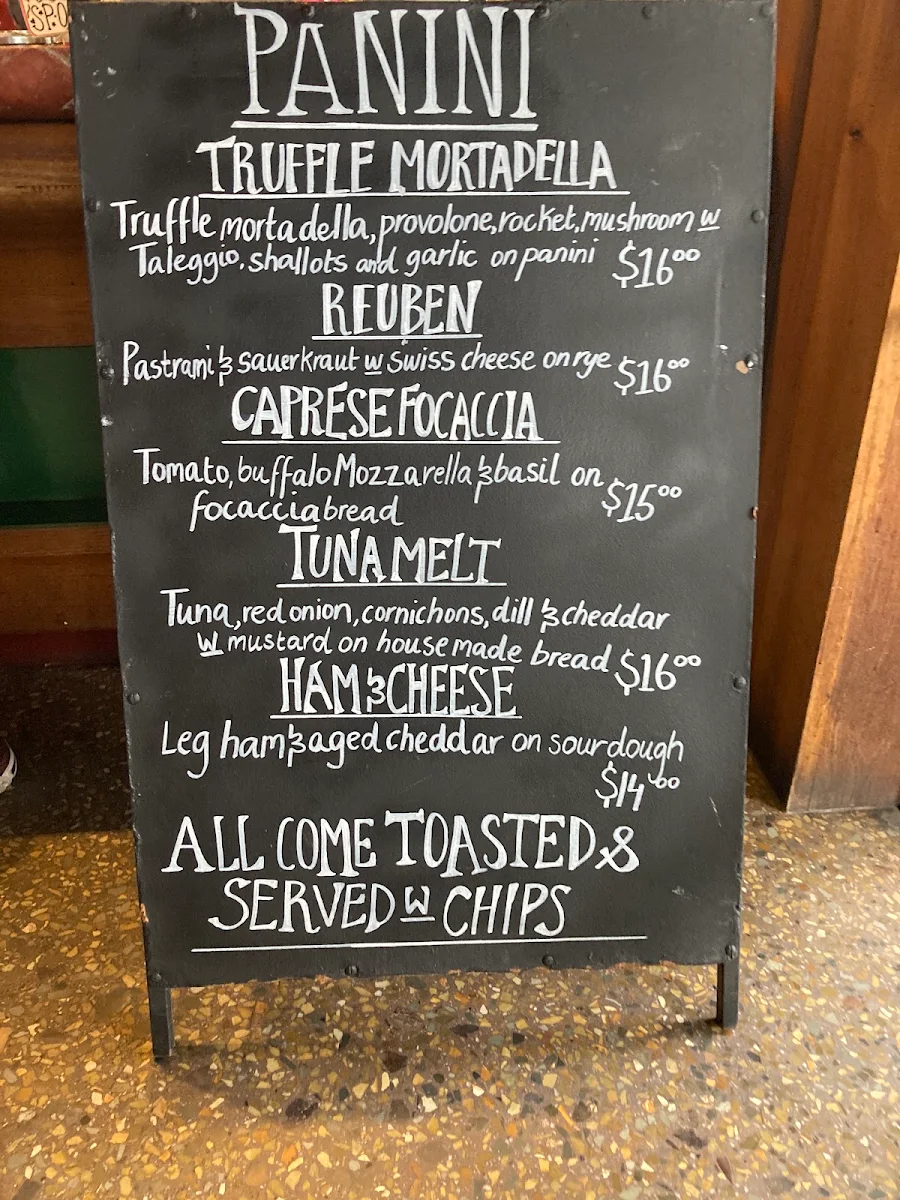 PANINI
TRUFFLE MORTADELLA
Truffle mortadella, provolone, rocket, mushroom w
Taleggio, shallots and garlic on panini $16⁰⁰
REUBEN
Pastrami & sauerkraut w swiss cheese on rye $16⁰⁰
CAPRESE FOCACCIA
Tomato, buffalo Mozzarella & basil on
focaccia bread $15⁰⁰
TUNA MELT
Tuna, red onion, cornichons, dill & cheddar
w mustard on house made bread $16⁰⁰
HAM & CHEESE
Leg ham & aged cheddar on sourdough
$14⁰⁰
ALL COME TOASTED &
SERVED w CHIPS